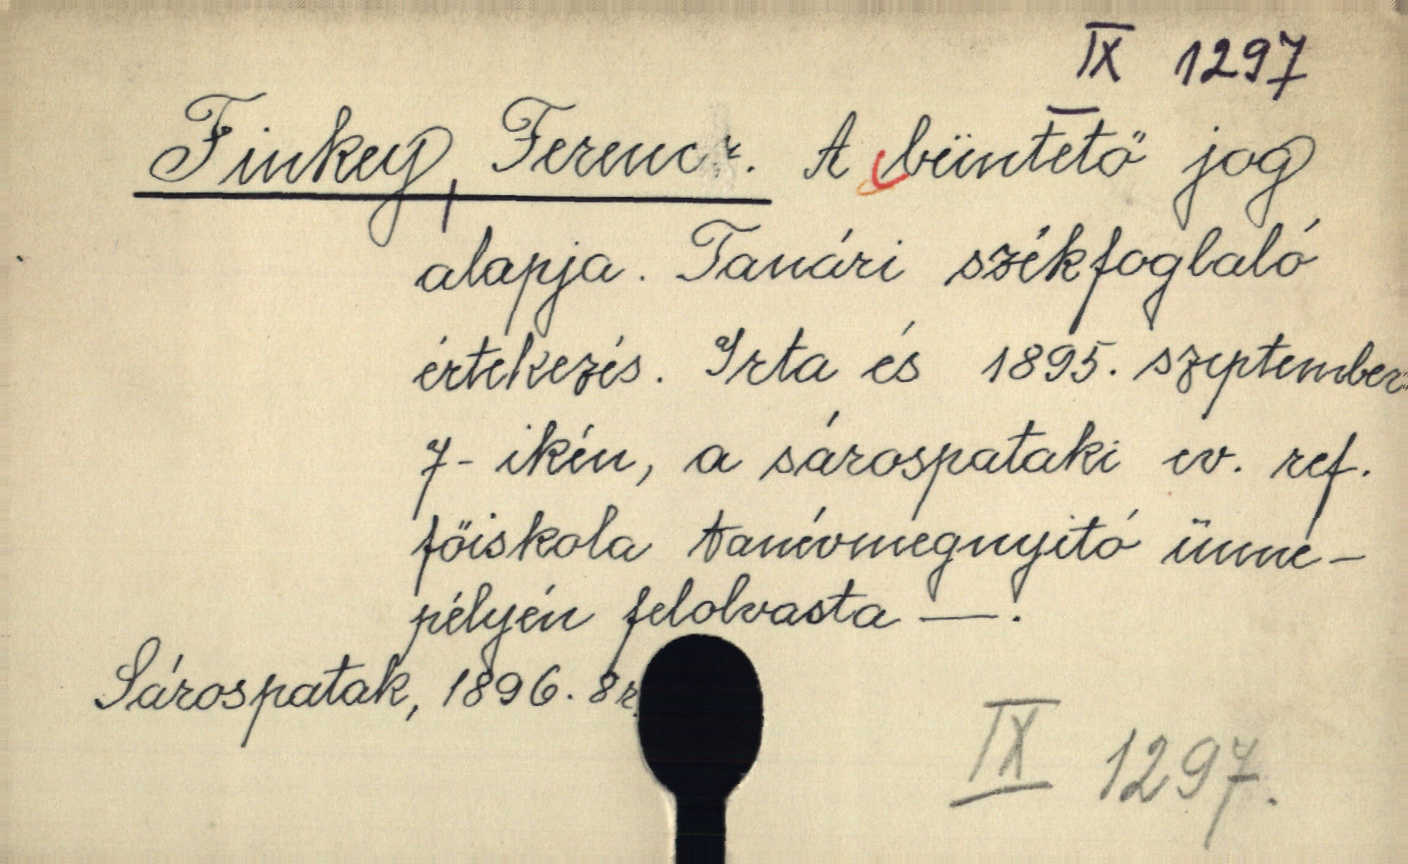 IX 1297
Finkey, Ferencz. A büntető jog
alapja. Tanári székfoglaló
értekezés. Irta és 1895. szeptember
7-ikén, a sárospataki ev. ref.
főiskola tanévmegnyitó ünne-
pélyén felolvasta —.
Sárospatak, 1896. 8r.
IX 1297.